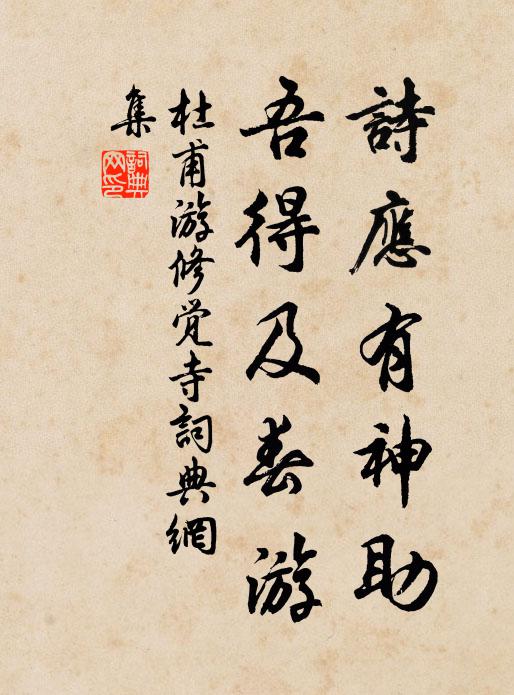 詩應有神助
吾得及春游
杜甫游修觉寺詞典網
集
詞典
网印